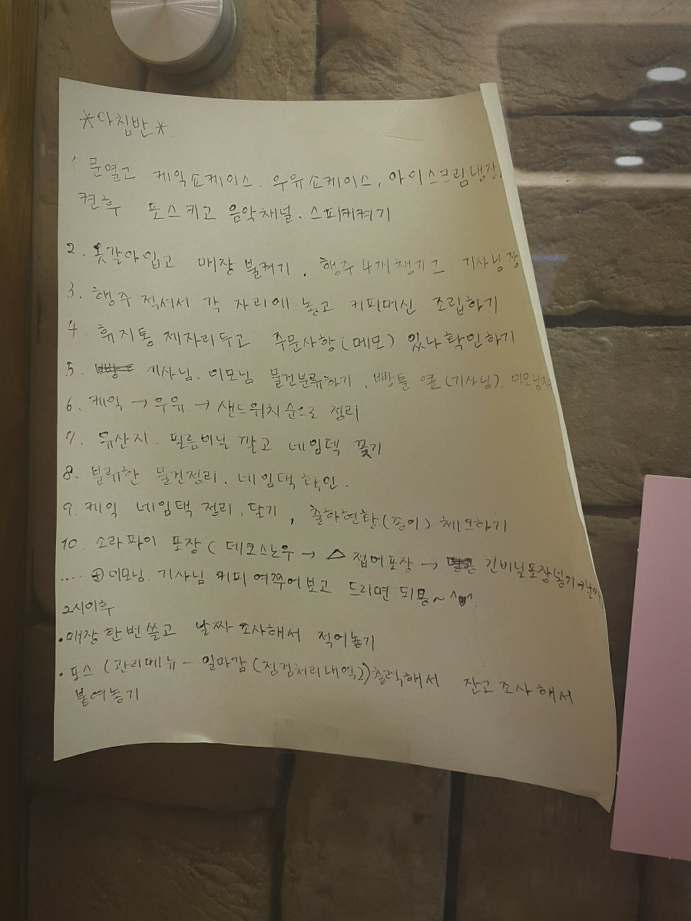 *아침반*
1 문열고 케익쇼케이스. 우유쇼케이스, 아이스크림냉장
켠후 포스키고 음악채널. 스피커켜기
2. 옷갈아입고 매장 불켜기. 행주 4개챙기고 기사님
3. 행주 적셔서 각 자리에 놓고 커피머신 조립하기
4 휴지통 제자리두고 주문사항(메모) 있나확인하기
5 기사님. 이모님 물건분류하기. 빵들 (기사님). 이모님
6. 케익 → 우유 → 샌드위치순으로 정리
7. 유산지. 필름비닐 깔고 네임텍 꽂기
8. 분류한 물건정리. 네임택확인.
9. 케익 네임택 정리.달기, 출하현황(종이) 체크하기
10. 소라파이 포장( 데코스노우 → △접어포장 → 긴비닐포장넣기→
.... ⊕이모님. 기사님 커피 여쭈어보고 드리면 되용~^^
2시이후
•매장한번쓸고 날짜조사해서 적어놓기
•포스 (관리메뉴 - 일마감(점검처리내역2)출력해서 잔고조사해서
붙여놓기